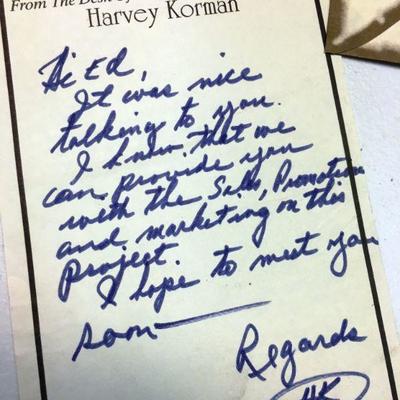 From The Desk of
Harvey Korman
Hi Ed,
It was nice
talking to you.
I know that we
can provide you
with the Sales, Promotion
and marketing on this
Project.
I hope to meet you
soon
Regards
HK